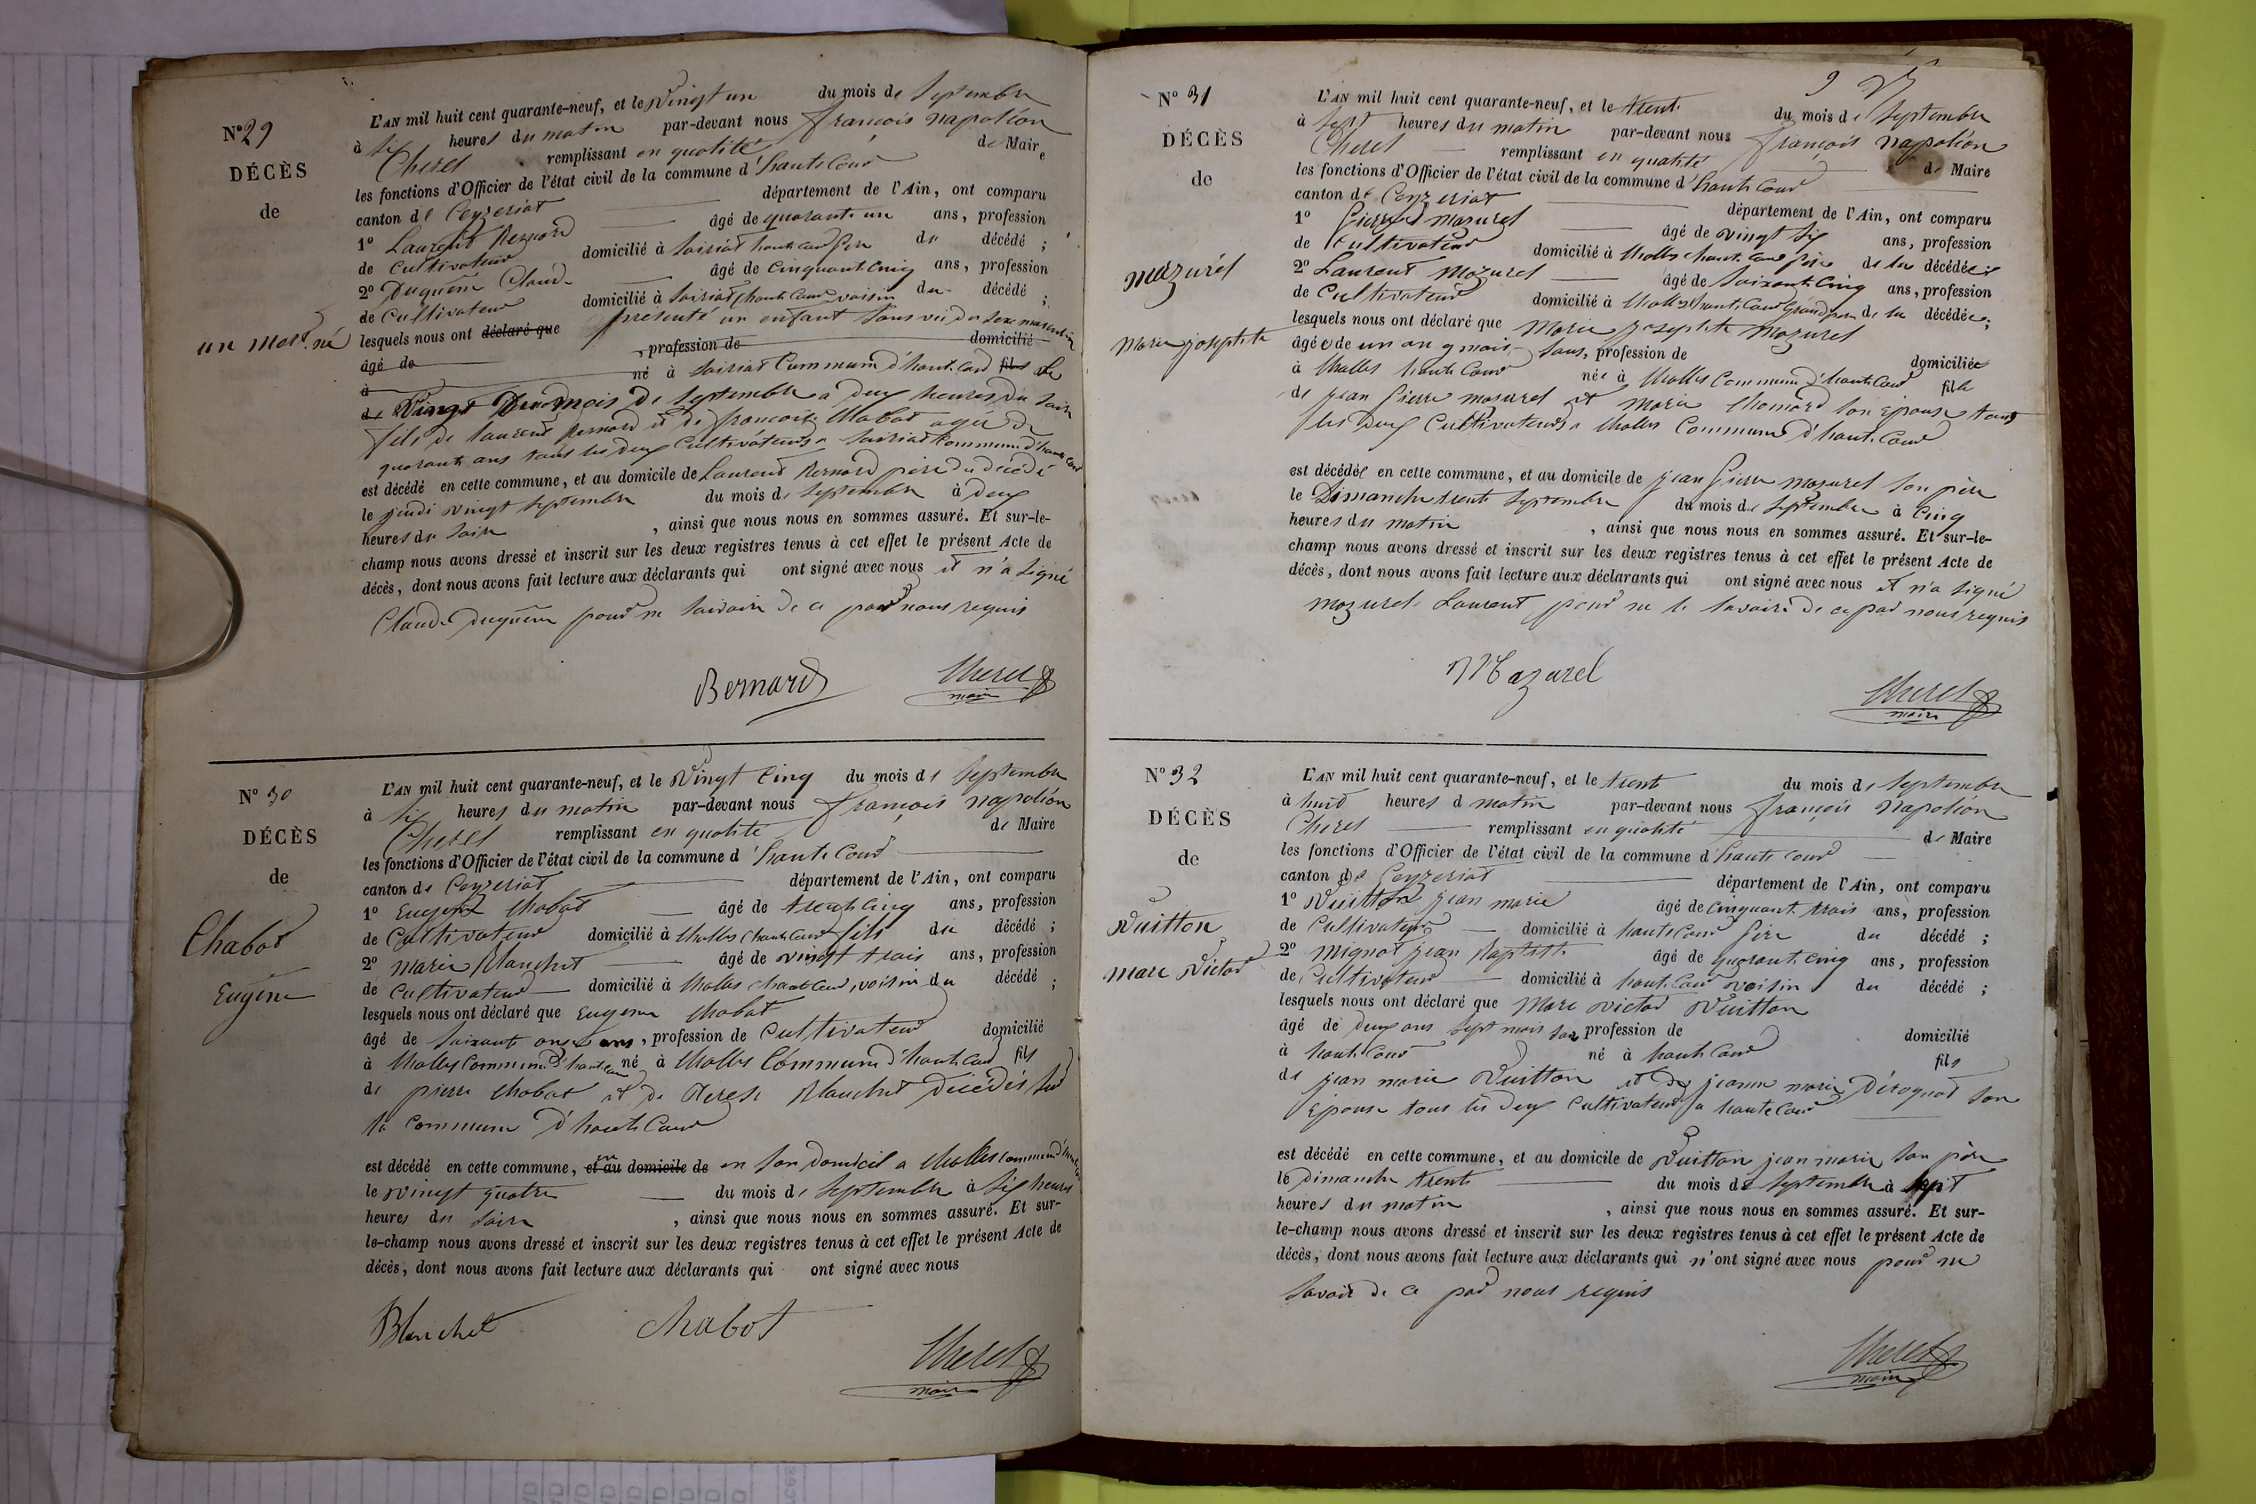 N° 29
DÉCÈS
de
un mort né
L'AN mil huit cent quarante-neuf, et le Vingt un du mois de Septembre
à six heures du matin par-devant nous françois napoléon
Cherel remplissant en qualité de Maire
les fonctions d'Officier de l'état civil de la commune d'haute Cour
canton de Ceyzeriat département de l'Ain, ont comparu
1° Laurent Bernard âgé de quarante un ans, profession
de Cultivateur domicilié à Soiriat haute cour père du décédé ;
2° Duquême Claude âgé de Cinquante Cinq ans, profession
de Cultivateur domicilié à Soiriat haute Cour voisin du décédé ;
lesquels nous ont déclaré que présenté un enfant Sans vie du Sexe masculin
âgé de , profession de domicilié
à né à Soiriat Commune d'haute Cour fils le
de Vingt du mois de Septembre à deux heures du Soir
fils de Laurent Bernard et de françoise Chabot agée de
quarante ans tous les deux Cultivateurs a Soiriat Commune d'haute Cour
est décédé en cette commune, et au domicile de Laurent Bernard père du décédé
le jeudi vingt Septembre du mois de Septembre à deux
heures du Soir , ainsi que nous nous en sommes assuré. Et sur-le-
champ nous avons dressé et inscrit sur les deux registres tenus à cet effet le présent Acte de
décès, dont nous avons fait lecture aux déclarants qui ont signé avec nous et n'a signé
Claude Duquême pour ne Savoir de ce par nous requis
Bernard
Cherel
maire
N° 30
DÉCÈS
de
Chabot
Eugène
L'AN mil huit cent quarante-neuf, et le Vingt Cinq du mois de Septembre
à Six heures du matin par-devant nous françois napoléon
Cherel remplissant en qualité de Maire
les fonctions d'Officier de l'état civil de la commune d'haute Cour
canton de Ceyzeriat département de l'Ain, ont comparu
1° Eugene Chabot âgé de trente Cinq ans, profession
de Cultivateur domicilié à Challes haute Cour fils du décédé ;
2° Marie Blanchet âgé de vingt trois ans, profession
de Cultivateur domicilié à Challes haute Cour, voisin du décédé ;
lesquels nous ont déclaré que Eugene Chabot
âgé de Soixante onze ans, profession de Cultivateur domicilié
à Challes Commune d'haute Cour né à Challes Commune d'haute Cour fils
de pierre Chabot et de Terese Blanchet Décédés Sur
la Commune d'haute Cour
est décédé en cette commune, et au domicile de en Son Domicil a Challes Commune d'haute Cour
le vingt quatre du mois de Septembre à Six heures
heures du Soir , ainsi que nous nous en sommes assuré. Et sur-
le-champ nous avons dressé et inscrit sur les deux registres tenus à cet effet le présent Acte de
décès, dont nous avons fait lecture aux déclarants qui ont signé avec nous
Blanchet Chabot
Cherel
maire
N° 31
DÉCÈS
de
Mazurel
Marie josephte
L'AN mil huit cent quarante-neuf, et le trente du mois de Septembre
à Sept heures du matin par-devant nous françois napoléon
Cherel remplissant en qualité de Maire
les fonctions d'Officier de l'état civil de la commune d'haute Cour
canton de Ceyzeriat département de l'Ain, ont comparu
1° Pierre Mazurel âgé de vingt Six ans, profession
de Cultivateur domicilié à Challes haute Cour père de la décédée
2° Laurent Mazurel âgé de Soixante Cinq ans, profession
de Cultivateur domicilié à Challes haute Cour Grand père de la décédée ;
lesquels nous ont déclaré que Marie josephte Mazurel
âgée de un an 9 mois Sans, profession de domiciliée
à Challes haute Cour née à Challes Commune d'haute Cour fille
de jean Pierre Mazurel et Marie Chomard Son Epouse tous
les Deux Cultivateurs a Challes Commune d'haute Cour
est décédée en cette commune, et au domicile de jean Pierre Mazurel Son père
le Dimanche trente Septembre du mois de Septembre à Cinq
heures du matin , ainsi que nous nous en sommes assuré. Et sur-le-
champ nous avons dressé et inscrit sur les deux registres tenus à cet effet le présent Acte de
décès, dont nous avons fait lecture aux déclarants qui ont signé avec nous et n'a signé
Mazurel Laurent pour ne le Savoir de ce par nous requis
Mazurel
Cherel
maire
N° 32
DÉCÈS
de
Vuitton
Marc Victor
L'AN mil huit cent quarante-neuf, et le trente du mois de Septembre
à huit heures d matin par-devant nous françois Napoléon
Cherel remplissant en qualité de Maire
les fonctions d'Officier de l'état civil de la commune d'haute Cour
canton de Ceyzeriat département de l'Ain, ont comparu
1° Vuitton jean marie âgé de Cinquante trois ans, profession
de Cultivateur domicilié à haute Cour père du décédé ;
2° Mignot jean Baptiste âgé de quarante Cinq ans, profession
de Cultivateur domicilié à haute Cour voisin du décédé ;
lesquels nous ont déclaré que Marc Victor Vuitton
âgé de deux ans Sept mois San profession de domicilié
à haute Cour né à haute Cour fils
de jean marie Vuitton et de jeanne marie Détognat Son
Epouse tous les deux Cultivateurs a haute Cour
est décédé en cette commune, et au domicile de Vuitton jean marie Son père
le dimanche trente du mois de Septembre à Sept
heures du matin , ainsi que nous nous en sommes assuré. Et sur-
le-champ nous avons dressé et inscrit sur les deux registres tenus à cet effet le présent Acte de
décès, dont nous avons fait lecture aux déclarants qui n'ont signé avec nous pour ne
Savoir de ce par nous requis
Cherel
maire